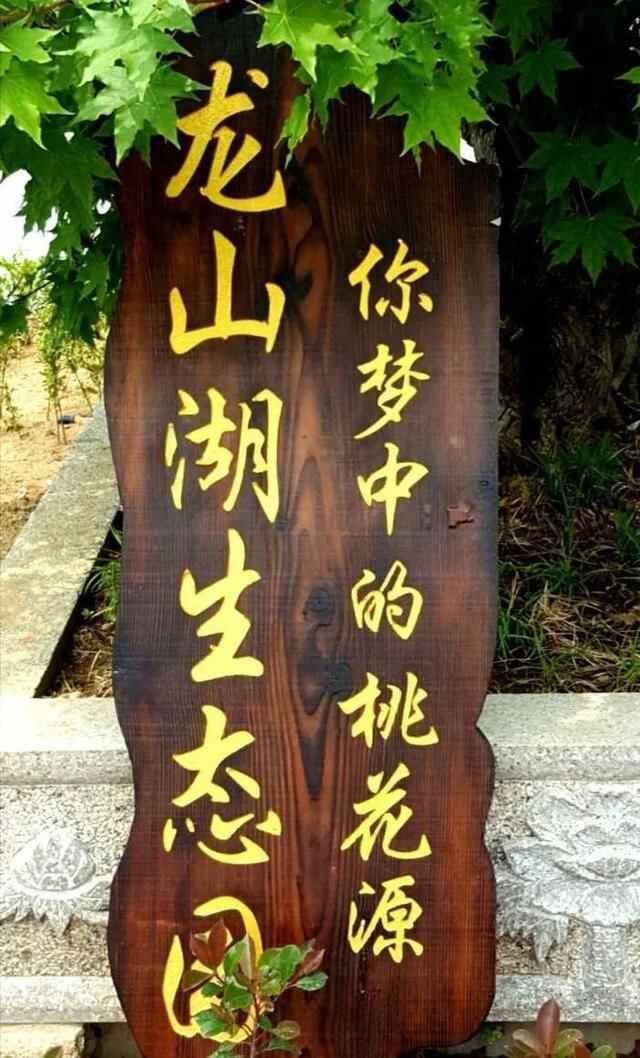 你梦中的桃花源
龙山湖生态园